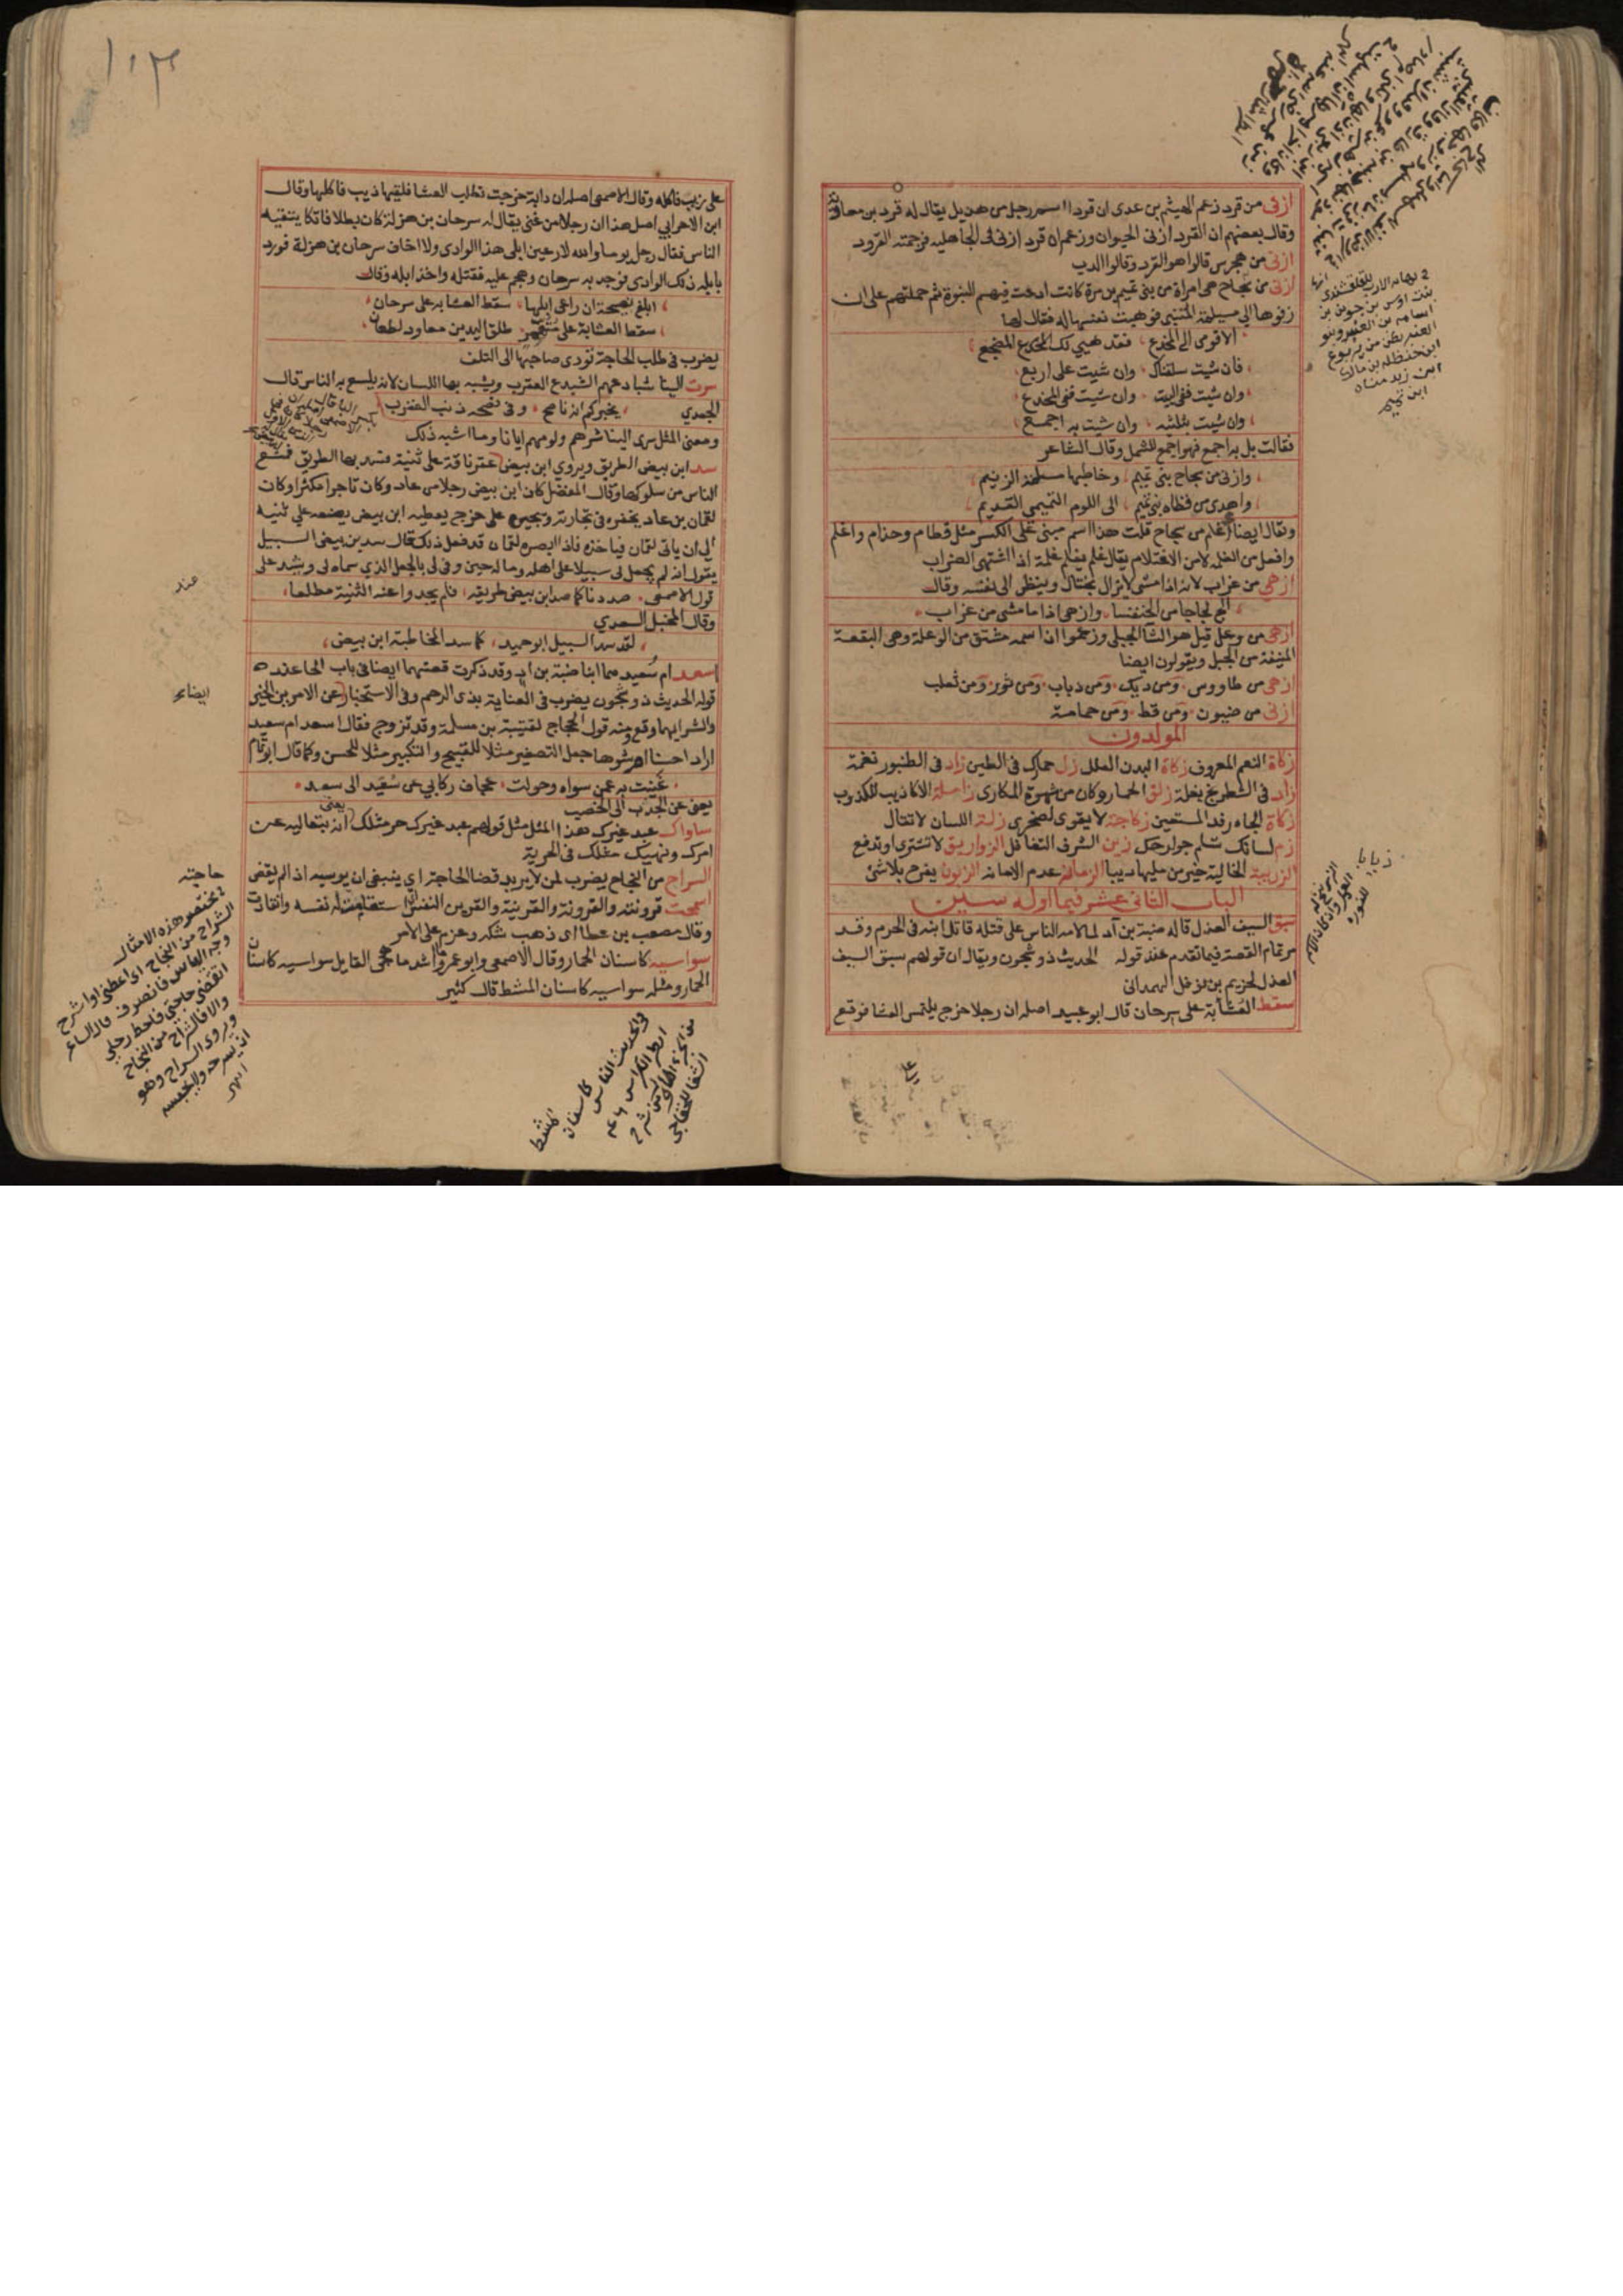 ازنى من قرد زعم الهيثم بن عدى ان قردا اسم رجل من هذيل يقال له قرد بن معاوية
وقال بعضهم ان القرد ازنى الحيوان وزعم ان قرد ازنى فى الجاهلية فرجمته القرود
ازنى من هجرس قالوا هو القرد وقالوا الدب
ازنى من سجاح هى امراة من بنى تميم بن مرة كانت ادعت فيهم النبوة ثم حملتهم على ان
زفوها الى مسيلمة المتنبى فوهبت نفسها له فقال لها
الا قومى الى المخدع ، فقد هيى لك المضجع
فان شيت سلقناك ، وان شيت على اربع
وان شيت ففى البيت ، وان شيت ففى المخدع
وان شيت بثلثيه ، وان شيت به اجمع
فقالت بل به اجمع فهو اجمع للشمل وقال الشاعر
وازنى من سجاح بنى تميم ، وخاطبها مسيلمة الزنيم
واهدى من قطاة بنى تميم ، الى اللوم التميمى القديم
ويقال ايضا اغلم من سجاح قلت هذا اسم مبنى على الكسر مثل قطام وحذام واغلم
وافعل من الغلمة لا من الاغتلام يقال غلم يغلم غلمة اذا اشتهى الضراب
ازهى من غراب لانه اذا مشى لا يزال يختال وينظر الى نفسه وقال
الج لجاجا من الخنفسا ، وازهى اذا ما مشى من غراب
ازهى من وعل قيل هو الشا الجبلى وزعموا ان اسمه مشتق من الوعلة وهى البقعة
المنيفة من الجبل ويقولون ايضا
ازهى من طاووس ومن ديك ومن ذباب ومن ثور ومن ثعلب
ازنى من ضيون ومن قط ومن حمامة
المولدون
زكاة النعم المعروف زكاة البدن العلل زل حمارك فى الطين زاد فى الطنبور نغمة
زاد فى الشطرنج بغلة زلق الحمار وكان من شهوة المكارى زاملة الاكاذيب للكذوب
زكاة الجاه رفد المستعين زجاجة لا يقوى لصخرى زلة اللسان لا تقال
زم لسانك تسلم جوارحك زين الشرف التغافل الزواريق لا تشترى او تدفع
الزريبة الخالية خير من مليها ديبا الزمانة عدم الامانة الزبون يفرح بلا شئ
الباب الثانى عشر فيما اوله سين
سبق السيف العذل قاله ضبة بن آد لما لامه الناس على قتله قاتل ابنه فى الحرم وقد
مر تمام القصة فيما تقدم عند قوله الحديث ذو شجون ويقال ان قولهم سبق السيف
العذل لخزيم بن نوفل الهمدانى
سقط العشا به على سرحان قال ابو عبيد اصله ان رجلا خرج يلتمس العشا فوقع
فى نهاية الارب للقلقشندى
بنت اوس بن
اسامة بن العنبر وبنو
العنبر بطن من يربوع
ابن حنظلة بن مالك
ابن زيد مناة
ابن تميم
١٠٣
على ذيب فاكله وقال الاصمعى اصله ان دابة خرجت تطلب العشا فلقيها ذيب فاكلها وقال
ابن الاعرابي اصل هذا ان رجلا من غنى يقال له سرحان بن هزلة كان بطلا فاتكا يتقيه
الناس فقال رجل يوما والله لارعين ابلى هذا الوادى ولا اخاف سرحان بن هزلة فورد
بابله ذلك الوادى فوجد به سرحان وهجم عليه فقتله واخذ ابله وقال
ابلغ نصيحة ان راعى ابلها ، سقط العشا به على سرحان
سقط العشا به على متقمر ، طلق اليدين معاود لطعان
يضرب فى طلب الحاجة تودى صاحبها الى التلف
سرت الينا شبادعهم الشبدع العقرب ويشبه بها اللسان لانه يلسع به الناس قال
الجعدي يخبركم انه ناصح ، وفى نصحه ذنب العقرب
ومعنى المثل سرى الينا شرهم ولومهم ايانا وما اشبه ذلك
سد ابن بيض الطريق ويروي ابن بيض عقر ناقة على ثنية فسد بها الطريق فمنع
الناس من سلوكها وقال المفضل كان ابن بيض رجلا من عاد وكان تاجرا مكثرا وكان
لقمان بن عاد يخفره فى تجارته ويجيره على خرج يعطيه ابن بيض يضعه على ثنية
الى ان ياتى لقمان فياخذه فاذا ابصره لقمان قد فعل ذلك قال سد بن بيض السبيل
يقول انه لم يجعل لى سبيلا على اهله وماله حين وفى لى بالجعل الذي سماه لى وينشد على
قول الاصمعى صددنا كما صد ابن بيض طريقه ، فلم يجدوا عند الثنية مطلعا
وقال المخبل السعدي
لقد سد السبيل ابو حميد ، كما سد المخاطبة ابن بيض
اسعد ام سعيد هما ابنا ضبة بن اد وقد ذكرت قصتهما ايضا فى باب الحا عند
قوله الحديث ذو شجون يضرب فى العناية بذى الرحم وفى الاستخبار عن الامرين الخير
والشر ايهما وقع ومنه قول الحجاج لقتيبة بن مسلمة وقد تزوج فقال اسعد ام سعيد
اراد احسنا ام شوها جعل التصغير مثلا للقبيح والتكبير مثلا للحسن وكما قال ابو تمام
غنيت به عمن سواه وحولت ، عجاف ركابي عن سعيد الى سعد
يعنى عن الجدب الى الخصب
ساواك عبد غيرك هذا المثل مثل قولهم عبد غيرك حر مثلك يعنى انه بتعاليه عن
امرك ونهيك مثلك فى الحرية
السراح من النجاح يضرب لمن لا يريد قضا الحاجة اي ينبغى ان يوسيه اذا لم يقض
اسمحت قرونته والقرونة والقرينة والقرين النفس اى استقامت له نفسه وانقادت
وقال مصعب بن عطا اى ذهب شكه وعزم على الامر
سواسيه كاسنان الحمار وقال الاصمعى وابو عمرو ما اشد ما هجى القايل سواسيه كاسنان
الحمار ومثله سواسيه كاسنان المشط قال كثير
عند
ايضاء
حاجته
فى مختصر هذه الامثال
السراح من النجاح اى اعطنى او اشرح
انقضى حاجتى فاحط رحلى
والا فالسراح من النجاح
ويروى السراح وهو
وفى الحديث الناس كاسنان المشط